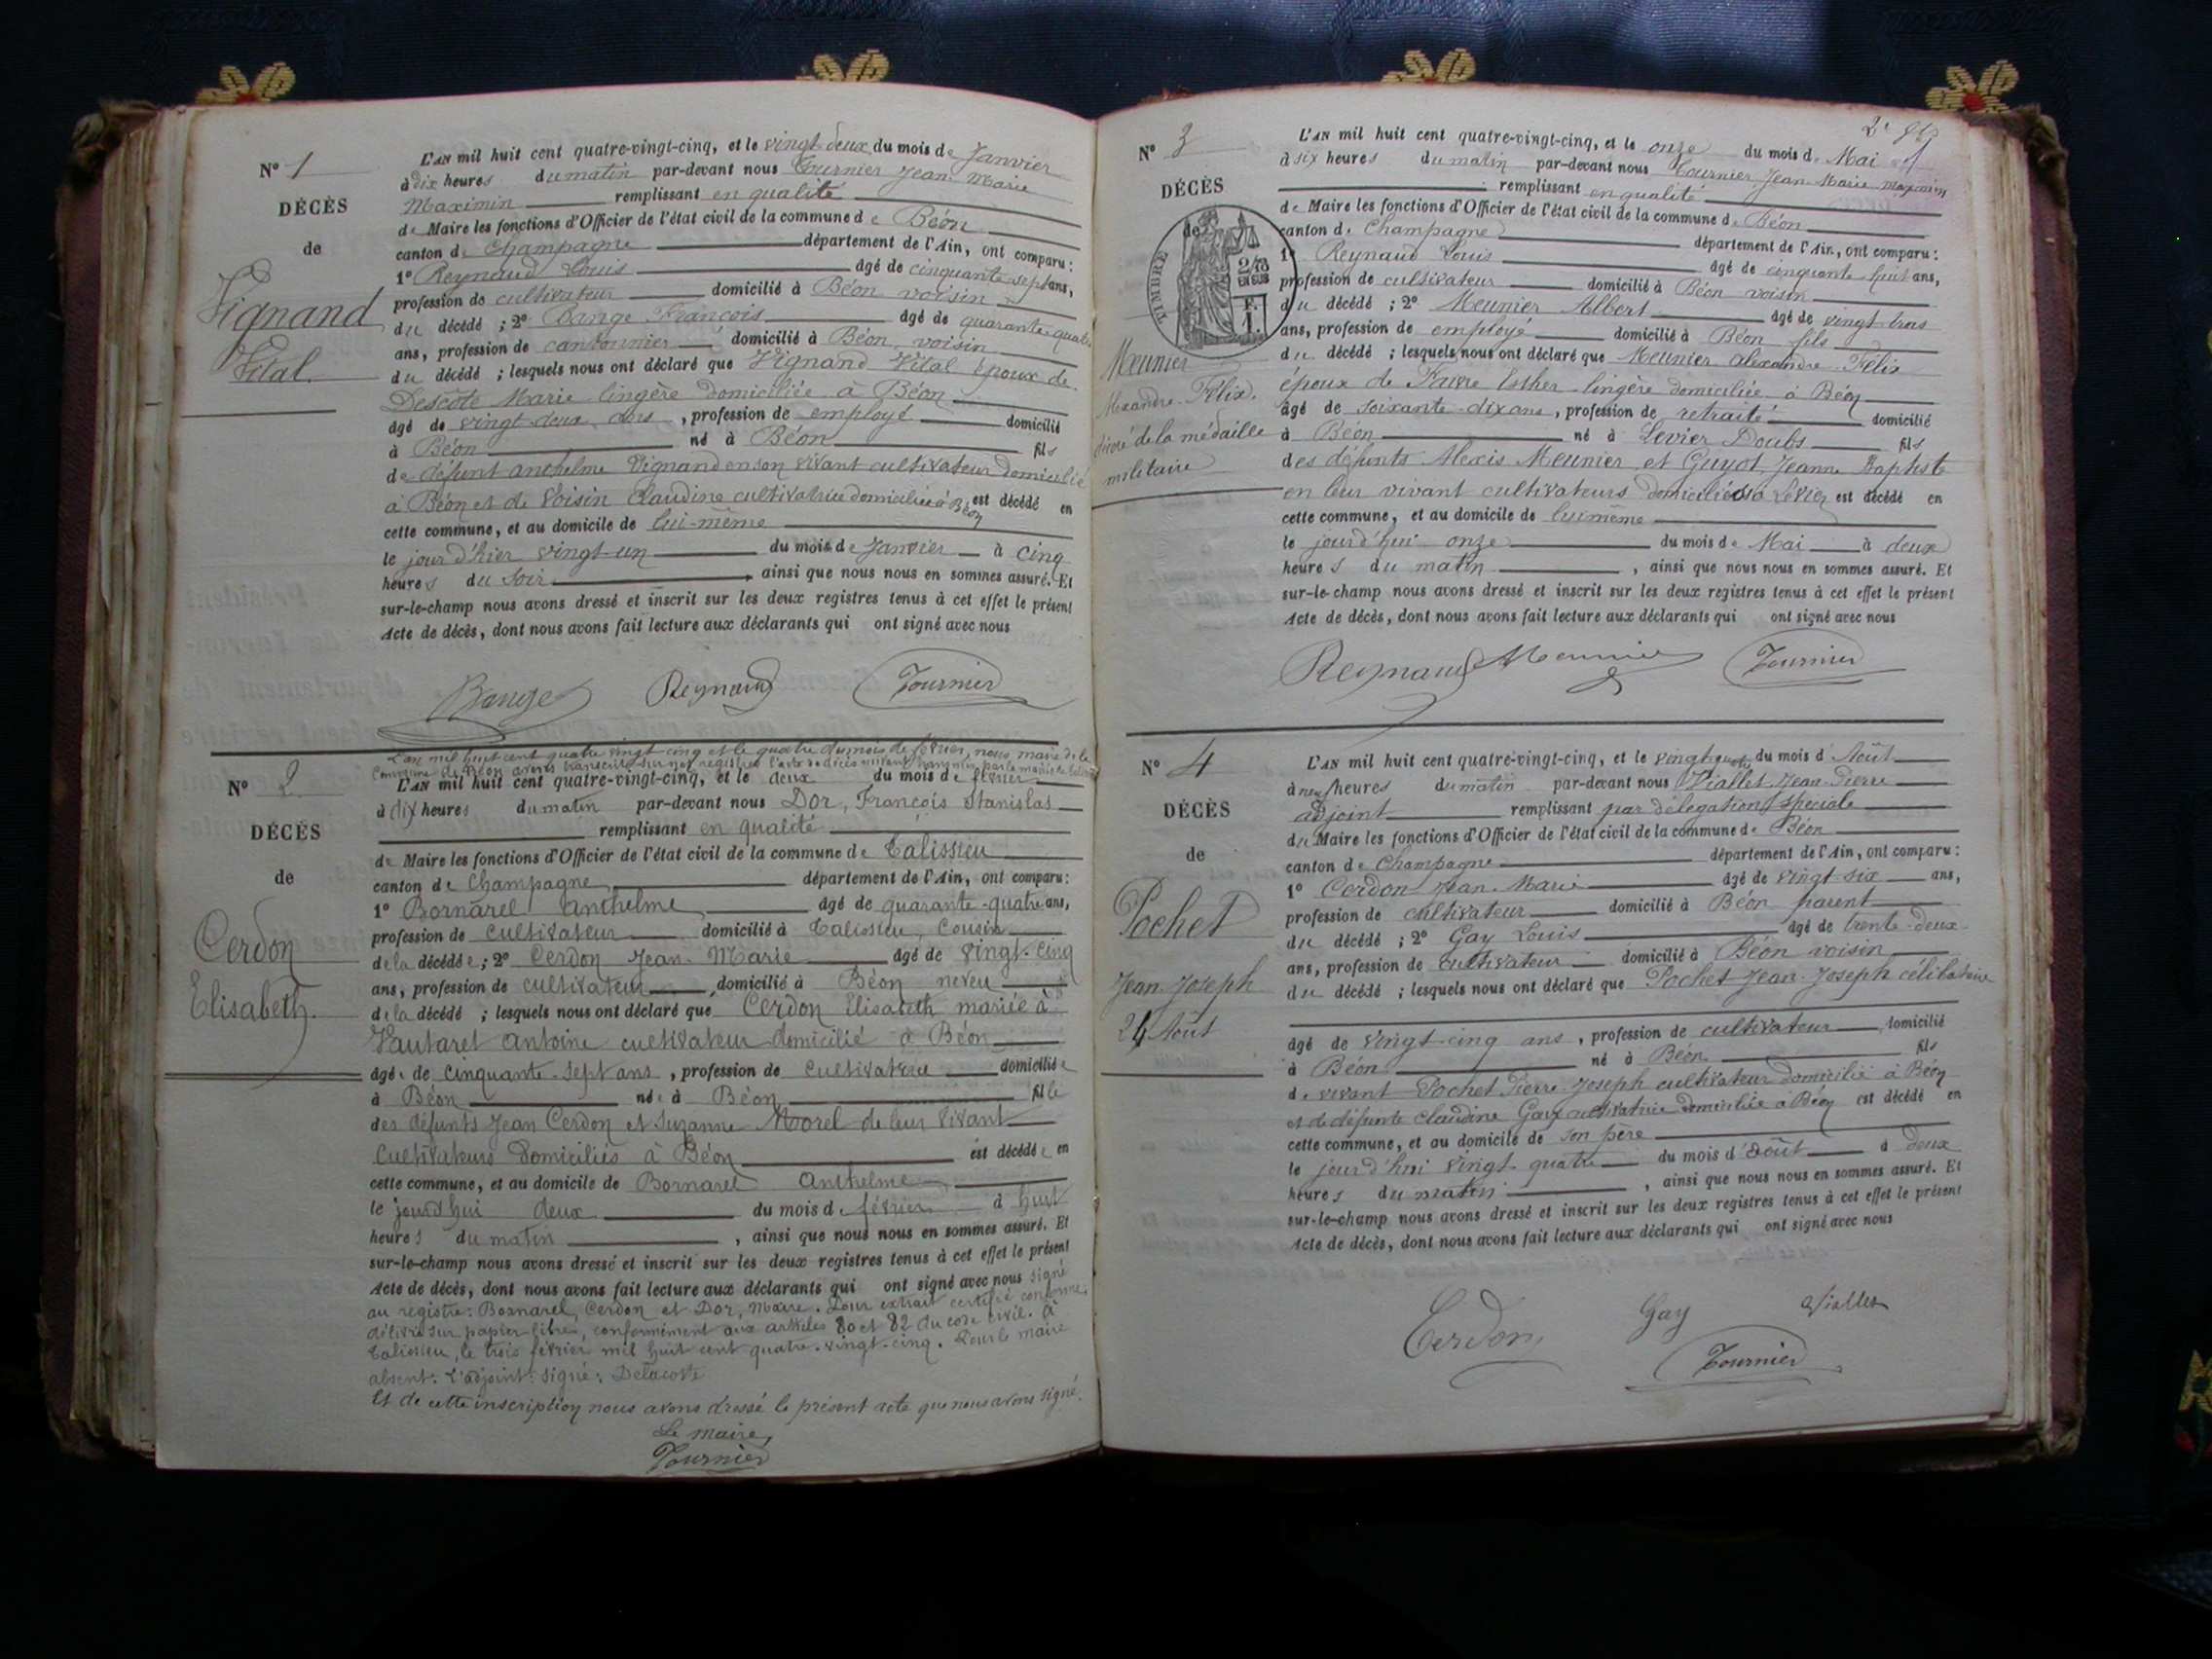 N° 1
DÉCÈS
de
Vignand
Vital.
L'AN mil huit cent quatre-vingt-cinq, et le vingt-deux du mois de Janvier
à dix heures du matin par-devant nous Tournier Jean-Marie
Maximin remplissant en qualité
de Maire les fonctions d'Officier de l'état civil de la commune de Béon
canton de Champagne département de l'Ain, ont comparu :
1° Reynaud Louis âgé de cinquante-sept ans,
profession de cultivateur domicilié à Béon voisin
du décédé ; 2° Bange François âgé de quarante-quatre
ans, profession de cantonnier domicilié à Béon, voisin
du décédé ; lesquels nous ont déclaré que Vignand Vital époux de
Descote Marie lingère domiciliée à Béon
âgé de vingt-deux ans, profession de employé domicilié
à Béon né à Béon fils
de défunt anthelme Vignand en son vivant cultivateur domicilié
à Béon et de Voisin Claudine cultivatrice domiciliée à Béon est décédé en
cette commune, et au domicile de lui-même
le jour d'hier vingt-un du mois de Janvier à cinq
heures du soir, ainsi que nous nous en sommes assuré. Et
sur-le-champ nous avons dressé et inscrit sur les deux registres tenus à cet effet le présent
Acte de décès, dont nous avons fait lecture aux déclarants qui ont signé avec nous
Bange Reynaud Tournier
L'an mil huit cent quatre vingt cinq et le quatre du mois de février, nous maire de la
commune de Béon avons transcrit sur nos registres l'acte de décès suivant transmis par le maire de
N° 2
DÉCÈS
de
Cerdon
Elisabeth.
L'AN mil huit cent quatre-vingt-cinq, et le deux du mois de février
à dix heures du matin par-devant nous Dor, François Stanislas
remplissant en qualité
de Maire les fonctions d'Officier de l'état civil de la commune de Talissieu
canton de Champagne département de l'Ain, ont comparu :
1° Bornarel anthelme âgé de quarante-quatre ans,
profession de cultivateur domicilié à Talissieu, Cousin
de la décédée ; 2° Cerdon Jean-Marie âgé de vingt-cinq
ans, profession de cultivateur, domicilié à Béon neveu
de la décédé ; lesquels nous ont déclaré que Cerdon Elisabeth mariée à
Vautaret antoine cultivateur domicilié à Béon
âgée de cinquante-sept ans, profession de cultivatrice domiciliée
à Béon née à Béon fille
des défunts Jean Cerdon et Suzanne Morel de leur vivant
cultivateurs domiciliés à Béon est décédée en
cette commune, et au domicile de Bornarel Anthelme
le jourd'hui deux du mois de février à huit
heures du matin, ainsi que nous nous en sommes assuré. Et
sur-le-champ nous avons dressé et inscrit sur les deux registres tenus à cet effet le présent
Acte de décès, dont nous avons fait lecture aux déclarants qui ont signé avec nous signé
au registre : Bornarel, Cerdon et Dor, Maire. Pour extrait certifié conforme,
délivré sur papier libre, conformément aux articles 80 et 82 du code civil. à
Talissieu, le trois février mil huit cent quatre-vingt-cinq. Pour le maire
absent : l'adjoint : signé : Delacoste
Et de cette inscription nous avons dressé le présent acte que nous avons signé.
Le maire,
Tournier
N° 3
DÉCÈS
de
TIMBRE
Meunier
Alexandre-Félix.
décoré de la médaille
militaire
L'AN mil huit cent quatre-vingt-cinq, et le onze du mois de Mai
à six heures du matin par-devant nous Tournier Jean-Marie Maximin
remplissant en qualité
de Maire les fonctions d'Officier de l'état civil de la commune de Béon
canton de Champagne département de l'Ain, ont comparu :
1° Reynaud Louis âgé de cinquante-huit ans,
profession de cultivateur domicilié à Béon voisin
du décédé ; 2° Meunier Albert âgé de vingt-trois
ans, profession de employé domicilié à Béon fils
du décédé ; lesquels nous ont déclaré que Meunier Alexandre Félix
époux de Favre Esther lingère domiciliée à Béon
âgé de soixante-dix ans, profession de retraité domicilié
à Béon né à Levier Doubs fils
des défunts Alexis Meunier et Guyot Jeanne Baptiste
en leur vivant cultivateurs domiciliés à Levier est décédé en
cette commune, et au domicile de lui-même
le jourd'hui onze du mois de Mai à deux
heures du matin, ainsi que nous nous en sommes assuré. Et
sur-le-champ nous avons dressé et inscrit sur les deux registres tenus à cet effet le présent
Acte de décès, dont nous avons fait lecture aux déclarants qui ont signé avec nous
Reynaud Meunier Tournier
N° 4
DÉCÈS
de
Pochet
Jean-Joseph
24 Août
L'AN mil huit cent quatre-vingt-cinq, et le vingt-quatre du mois d'Août
à neuf heures du matin par-devant nous Viallet Jean-Pierre
adjoint remplissant par délégation spéciale
du Maire les fonctions d'Officier de l'état civil de la commune de Béon
canton de Champagne département de l'Ain, ont comparu :
1° Cerdon Jean-Marie âgé de vingt-six ans,
profession de cultivateur domicilié à Béon parent
du décédé ; 2° Gay Louis âgé de trente-deux
ans, profession de cultivateur domicilié à Béon voisin
du décédé ; lesquels nous ont déclaré que Pochet Jean-Joseph célibataire
âgé de vingt-cinq ans, profession de cultivateur domicilié
à Béon né à Béon fils
de vivant Pochet Pierre-Joseph cultivateur domicilié à Béon
et de défunte Claudine Gay cultivatrice domiciliée à Béon est décédé en
cette commune, et au domicile de son père
le jourd'hui vingt-quatre du mois d'août à deux
heures du matin, ainsi que nous nous en sommes assuré. Et
sur-le-champ nous avons dressé et inscrit sur les deux registres tenus à cet effet le présent
Acte de décès, dont nous avons fait lecture aux déclarants qui ont signé avec nous
Cerdon Gay Viallet
Tournier